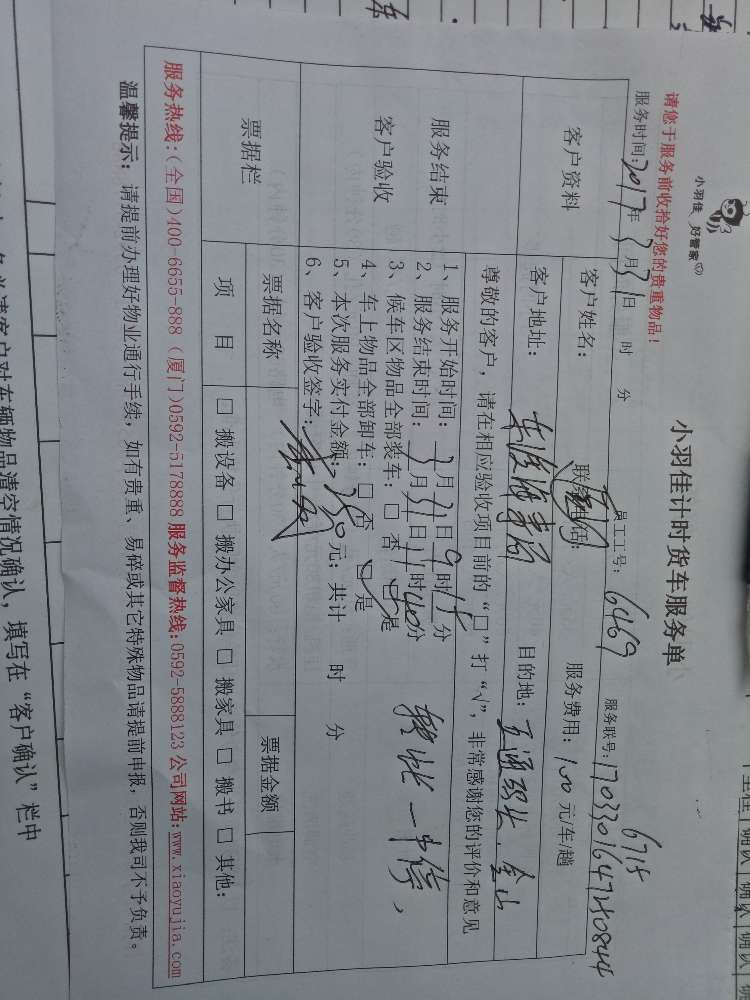 小羽佳 好管家
小羽佳计时货车服务单
请您于服务前收拾好您的贵重物品！
6715
服务时间:2017年3月31日 时 分 员工工号: 6469 服务联号:170330164740844
客户资料
客户姓名: 联系电话: 服务费用: 100 元/车/趟
客户地址: 东渡海事局 目的地: 金山
尊敬的客户，请在相应验收项目前的“□”打“√”，非常感谢您的评价和意见
服务结束
客户验收
1、服务开始时间: 3月31日9时15分
2、服务结束时间: 3月31日11时40分
3、候车区物品全部装车: □ 否 □ 是
4、车上物品全部卸车: □ 否 □ 是
5、本次服务实付金额: 250元；共计 时 分
6、客户验收签字:
票据栏
票据名称 票据金额
项 目 □ 搬设备 □ 搬办公家具 □ 搬家具 □ 搬书 □ 其他:
服务热线:(全国)400-6655-888 (厦门)0592-5178888 服务监督热线:0592-5888123 公司网站:www.xiaoyujia.com
温馨提示: 请提前办理好物业通行手续，如有贵重、易碎或其它特殊物品请提前申报，否则我司不予负责。
请客户对车辆物品清空情况确认，填写在“客户确认”栏中